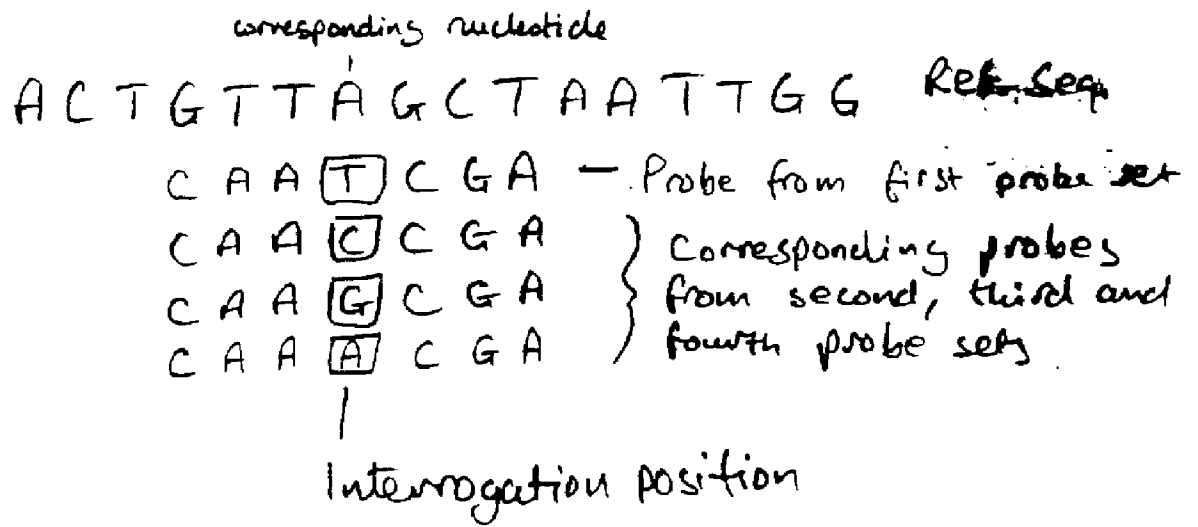 corresponding nucleotide
A C T G T T A G C T A A T T G G Ref. Seq.
C A A T C G A - Probe from first probe set
C A A C C G A Corresponding probes
C A A G C G A from second, third and
C A A A C G A fourth probe sets.
Interrogation position